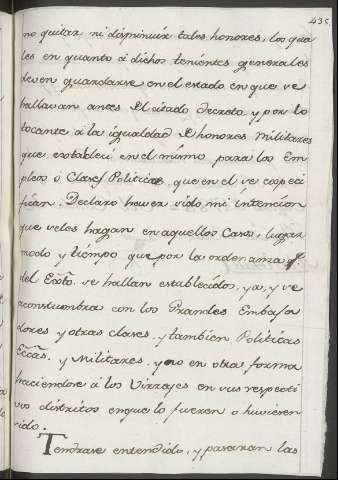 435.
no quitar ni disminuir tales honores, los qua
les en quanto à dichos tenientes generales
deven guardarse en el estado en que se
hallavan antes del citado Decreto, y por lo
tocante à la igualdad de honores Militares
que establecí en el mismo para los Em
pleos ò Clases Politicas, que en el se especi
fican. Declaro haver sido mi intencion
que se los hagan en aquellos Casos, lugar
modo y tiempo que por la ordenanza
del Exto. se hallan establecidos, ya, y se
acostumbra con los Grandes Embaja
dores y otras clases, y tambien Politicas
Eccas. y Militares, y no en otra forma
haciendose à los Virreyes en sus respecti
vos distritos en que lo fueren o huvieren
sido.
Tendrase entendido, y pasaran las